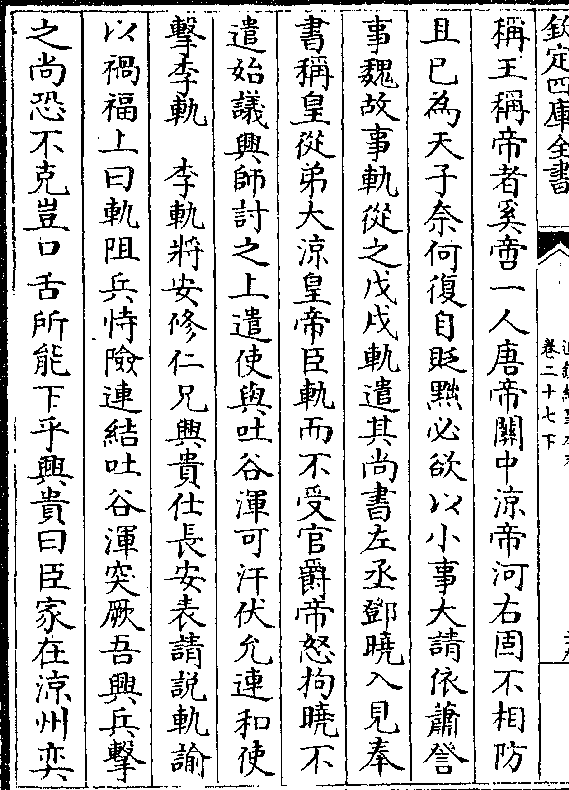 欽定四庫全書
卷二十七下
稱王稱帝者奚啻一人唐帝關中涼帝河右固不相防
且已為天子奈何復自貶黜必欲以小事大請依蕭詧
事魏故事軌從之戊戌軌遣其尚書左丞鄧曉入見奉
書稱皇從弟大涼皇帝臣軌而不受官爵帝怒拘曉不
遣始議興師討之上遣使與吐谷渾可汗伏允連和使
擊李軌 李軌將安修仁兄興貴仕長安表請說軌諭
以禍福上曰軌阻兵恃險連結吐谷渾突厥吾興兵擊
之尚恐不克豈口舌所能下乎興貴曰臣家在涼州奕